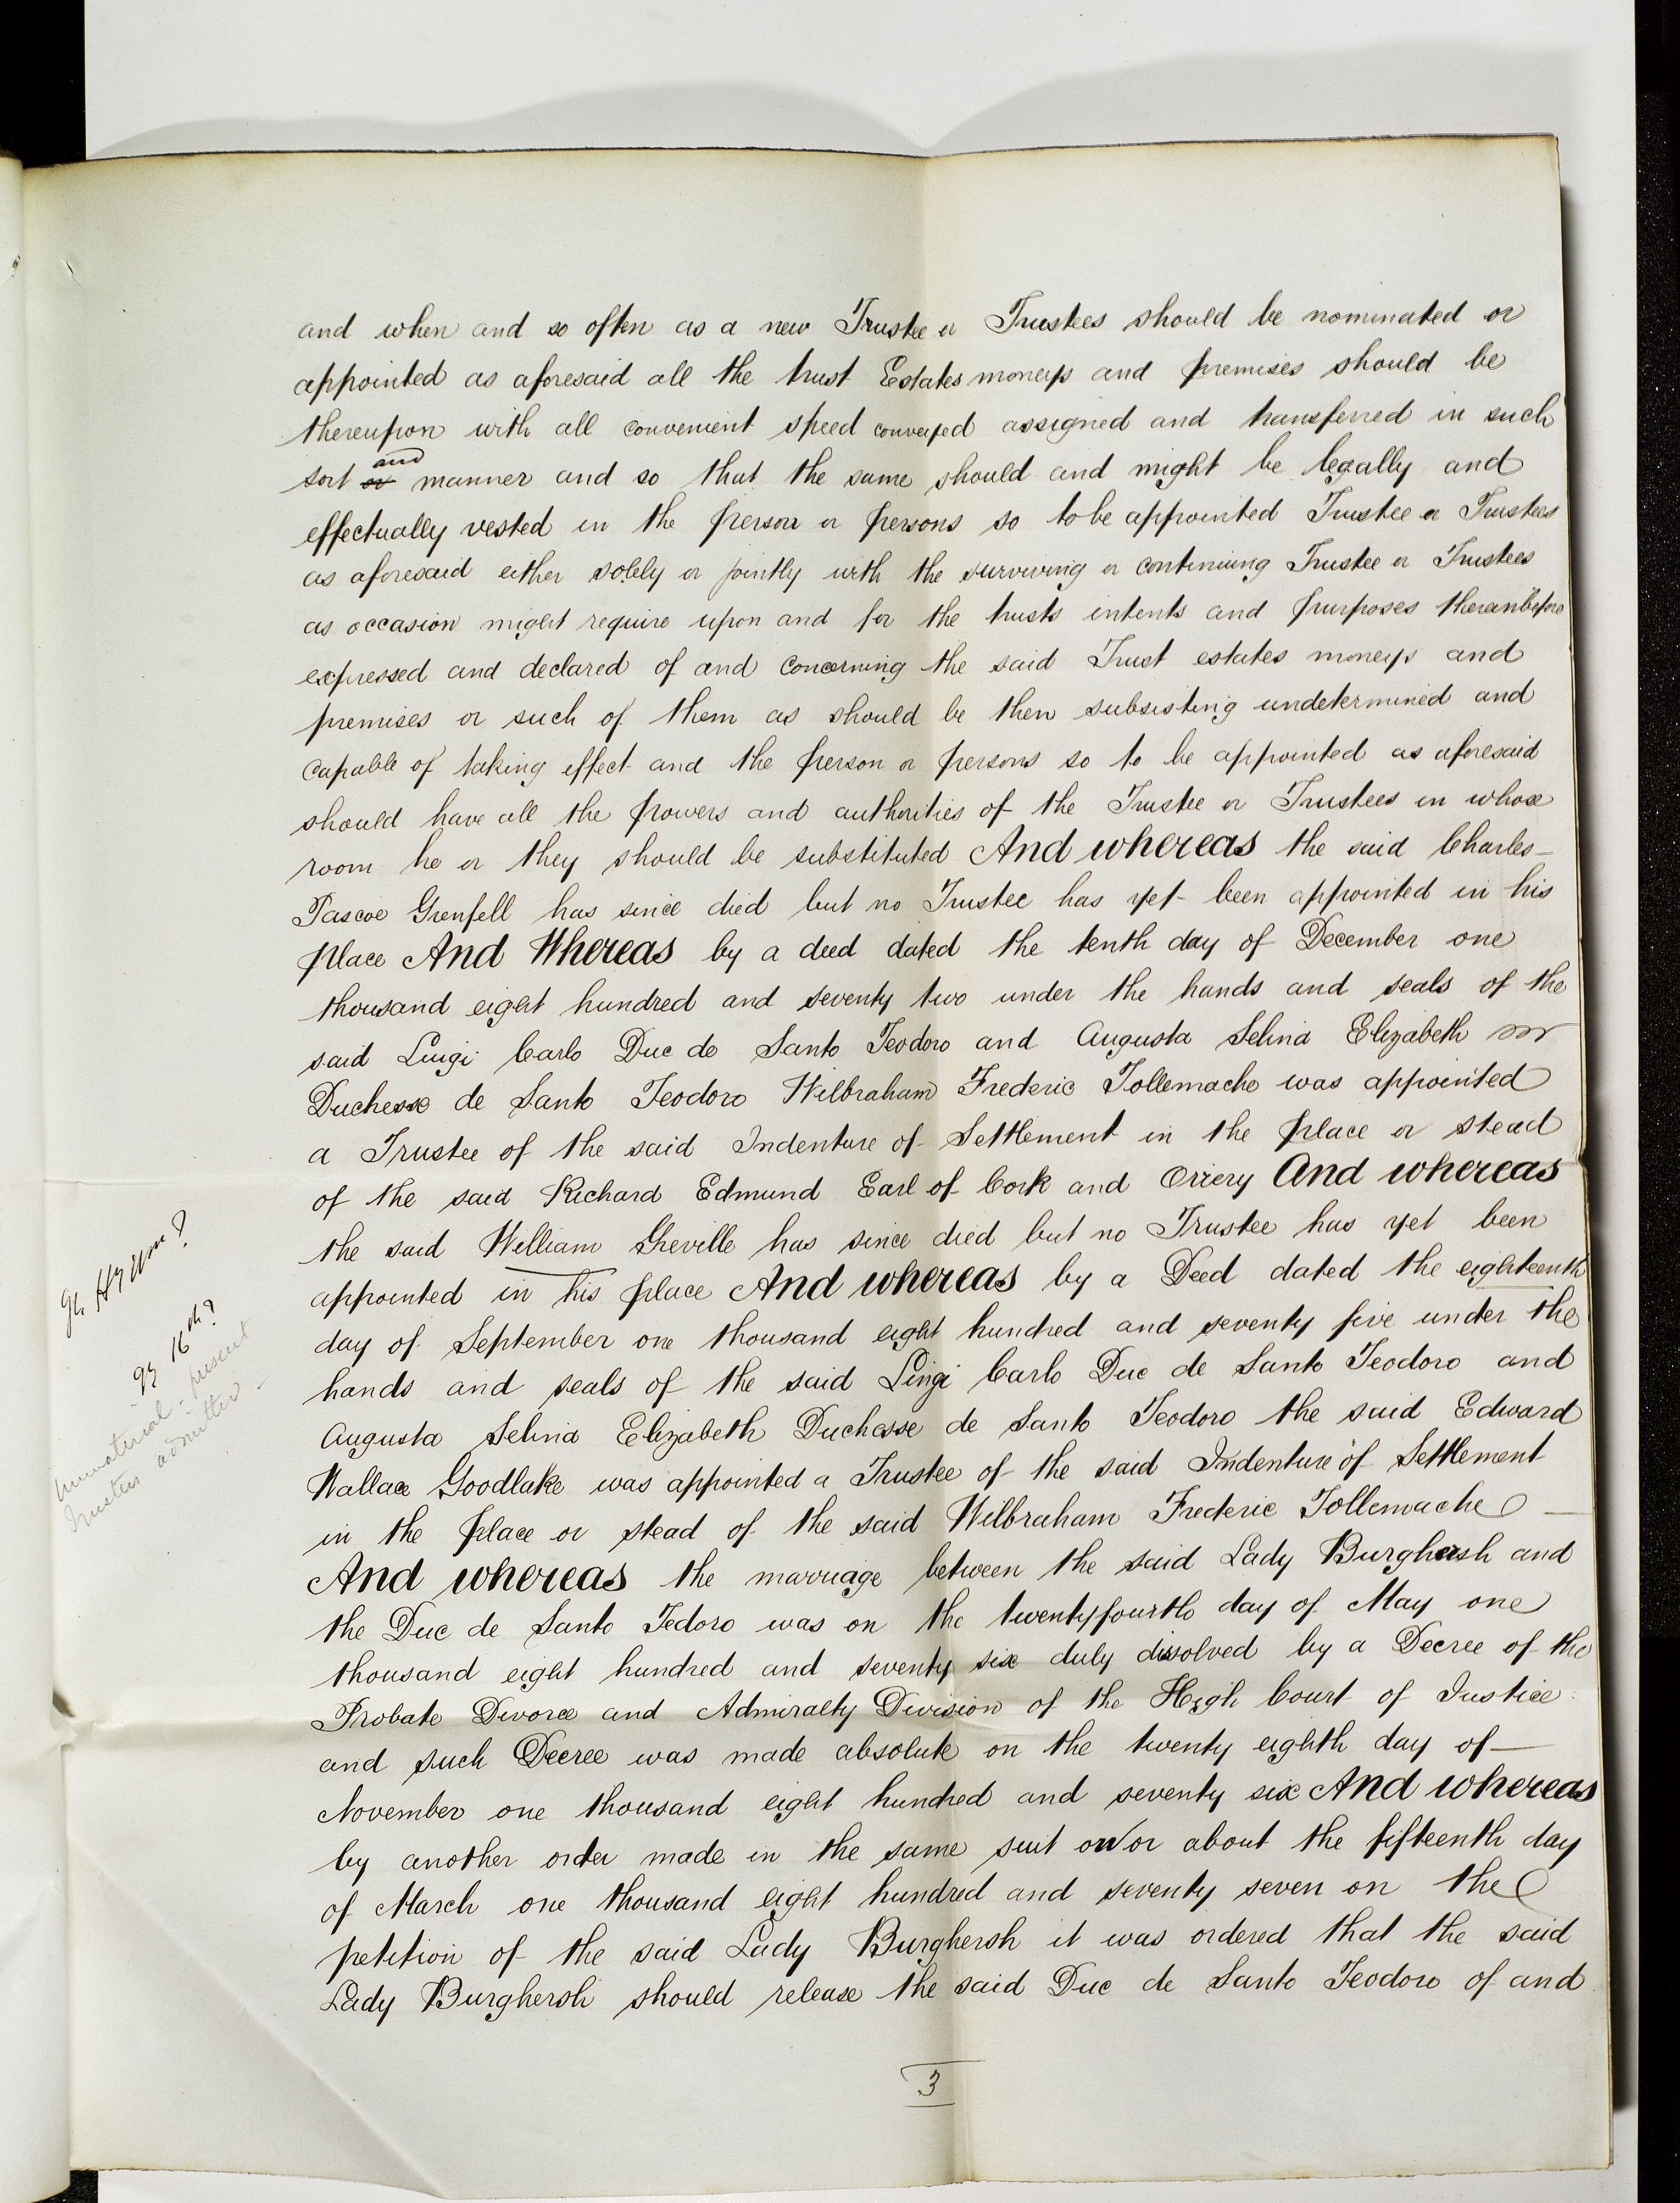 and when and so often as a new Trustee or Trustees should be nominated or
appointed as aforesaid all the trust Estates moneys and premises should be
thereupon with all convenient speed conveyed assigned and transferred in such
and
sort or manner and so that the same should and might be legally and
effectually vested in the person or persons so to be appointed Trustee or Trustees
as aforesaid either solely or jointly with the surviving or continuing Trustee or Trustees
as occasion might require upon and for the trusts intents and purposes thereinbefore
expressed and declared of and concerning the said Trust estates moneys and
premises or such of them as should be then subsisting undetermined and
capable of taking effect and the person or persons so to be appointed as aforesaid
should have all the powers and authorities of the Trustee or Trustees in whose
room he or they should be substituted And whereas the said Charles
Pascoe Grenfell has since died but no Trustee has yet been appointed in his
place And Whereas by a deed dated the tenth day of December one
thousand eight hundred and seventy two under the hands and seals of the
said Luigi Carlo Duc de Santo Teodoro and Augusta Selina Elizabeth
Duchesse de Santo Teodoro Wilbraham Frederic Tollemache was appointed
a Trustee of the said Indenture of Settlement in the place or stead
of the said Richard Edmund Earl of Cork and Orrery And whereas
the said William Greville has since died but no Trustee has yet been
appointed in his place And whereas by a Deed dated the eighteenth
day of September one thousand eight hundred and seventy five under the
hands and seals of the said Lingi Carlo Duc de Santo Teodoro and
Augusta Selina Elizabeth Duchesse de Santo Teodoro the said Edward
Wallace Goodlake was appointed a Trustee of the said Indenture of Settlement
in the place or stead of the said Wilbraham Frederic Tollemache
And whereas the marriage between the said Lady Burghersh and
the Duc de Santo Tedoro was on the twentyfourth day of May one
thousand eight hundred and seventy six duly dissolved by a Decree of the
Probate Divorce and Admiralty Division of the High Court of Justice
and such Decree was made absolute on the twenty eighth day of
November one thousand eight hundred and seventy six And whereas
by another order made in the same suit on or about the fifteenth day
of March one thousand eight hundred and seventy seven on the
petition of the said Lady Burghersh it was ordered that the said
Lady Burghersh should release the said Duc de Santo Teodoro of and
3
16th?
immaterial - present
trustees admitted